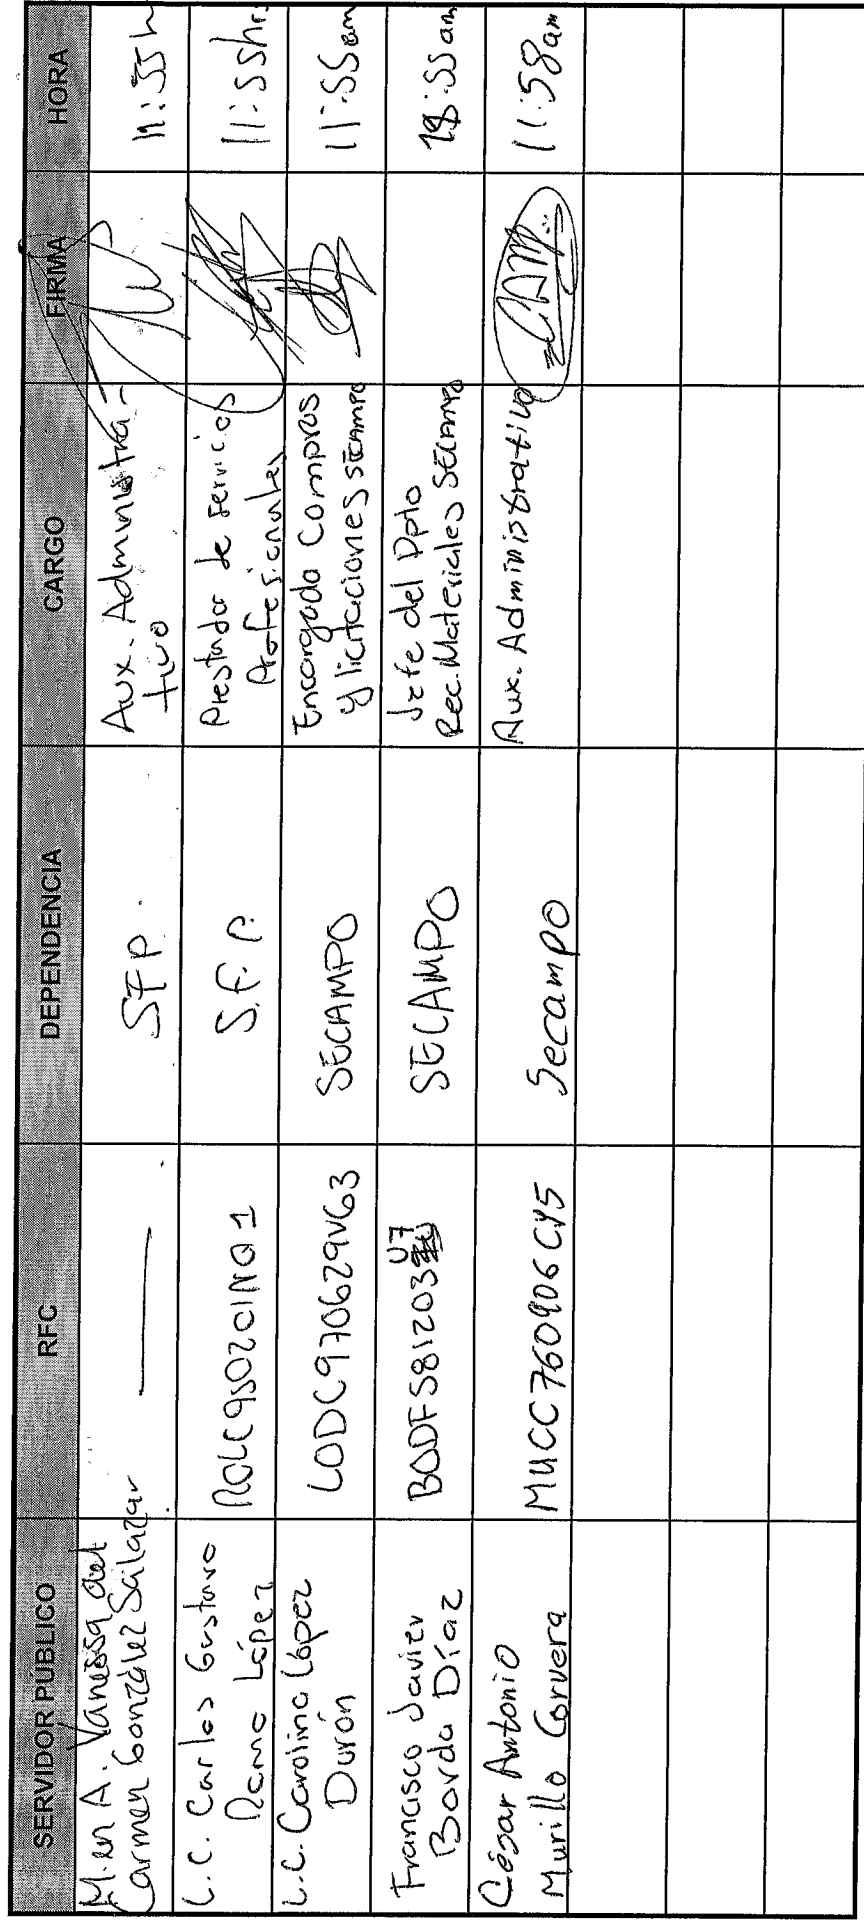 SERVIDOR PÚBLICO RFC DEPENDENCIA CARGO FIRMA HORA
M. en A. Vanessa del
Carmen González Salazar
——— SFP. Aux. Administra-
tivo
11:55 h
L.C. Carlos Gustavo
Romo López
S.F.P. Prestador de servicios
Profesionales
11:55hr.
L.C. Carolina López
Durón
LODC970629VG3 SECAMPO Encargada Compras
y licitaciones SECAMPO
11:55am
Francisco Javier
Borda Díaz
BODF581203
U7
SECAMPO Jefe del Dpto
Rec. Materiales SECAMPO
:55am
César Antonio
Murillo Corvera
MUCC760906CY5 Secampo Aux. Administrativo
11:58am